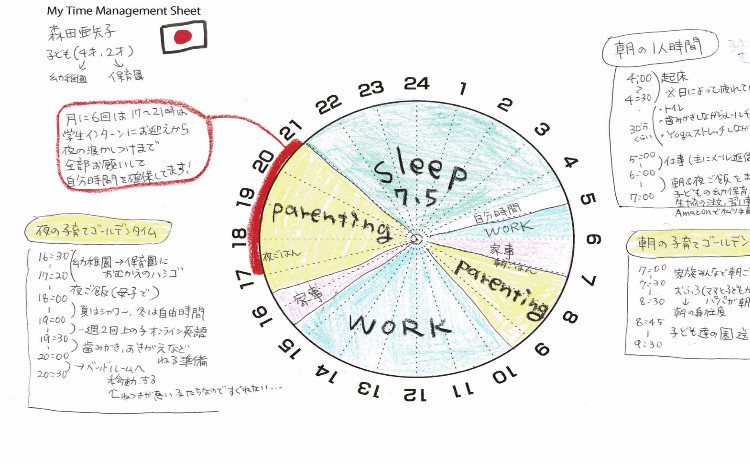 My Time Management Sheet
森田亜矢子
子ども(4才,2才)
幼稚園 保育園
月に6回は17〜21時は
学生インターンにお迎えから
夜の寝かしつけまで
全部お願いして
自分時間を確保してます!
夜の子育てゴールデンタイム
16=30
17=20
幼稚園→保育園に
おむかえのハシゴ
夜ご飯(母子で)
18=00
夏はシャワー、冬は自由時間
19=00
→週2回上の子オンライン英語
19=30
歯みがき、おきがえなど
ねる準備
20=00
20=30
→ベッドルームへ
移動する
24
1
2
3
4
5
6
7
8
9
10
11
12
13
14
15
16
17
18
19
20
21
22
23
sleep
7.5
自分時間
WORK
家事
朝ごはん
parenting
WORK
家事
夜ごはん
parenting
朝の1人時間
4:00
4=30
起床
※日によって疲れてい
・トイレ
30分
くらい
・Yogaストレッチしなが
5=00
6=00
仕事(主にメール返信
7=00
朝&夜ご飯をま
子どもの幼/保育
Amazonで
朝の子育てゴールデン
7=00
7=30
家族みんなで朝ご
8=30
おふろ(ママと子ども
パパが朝
朝の身仕度
8=45
9=30
子ども達の園送